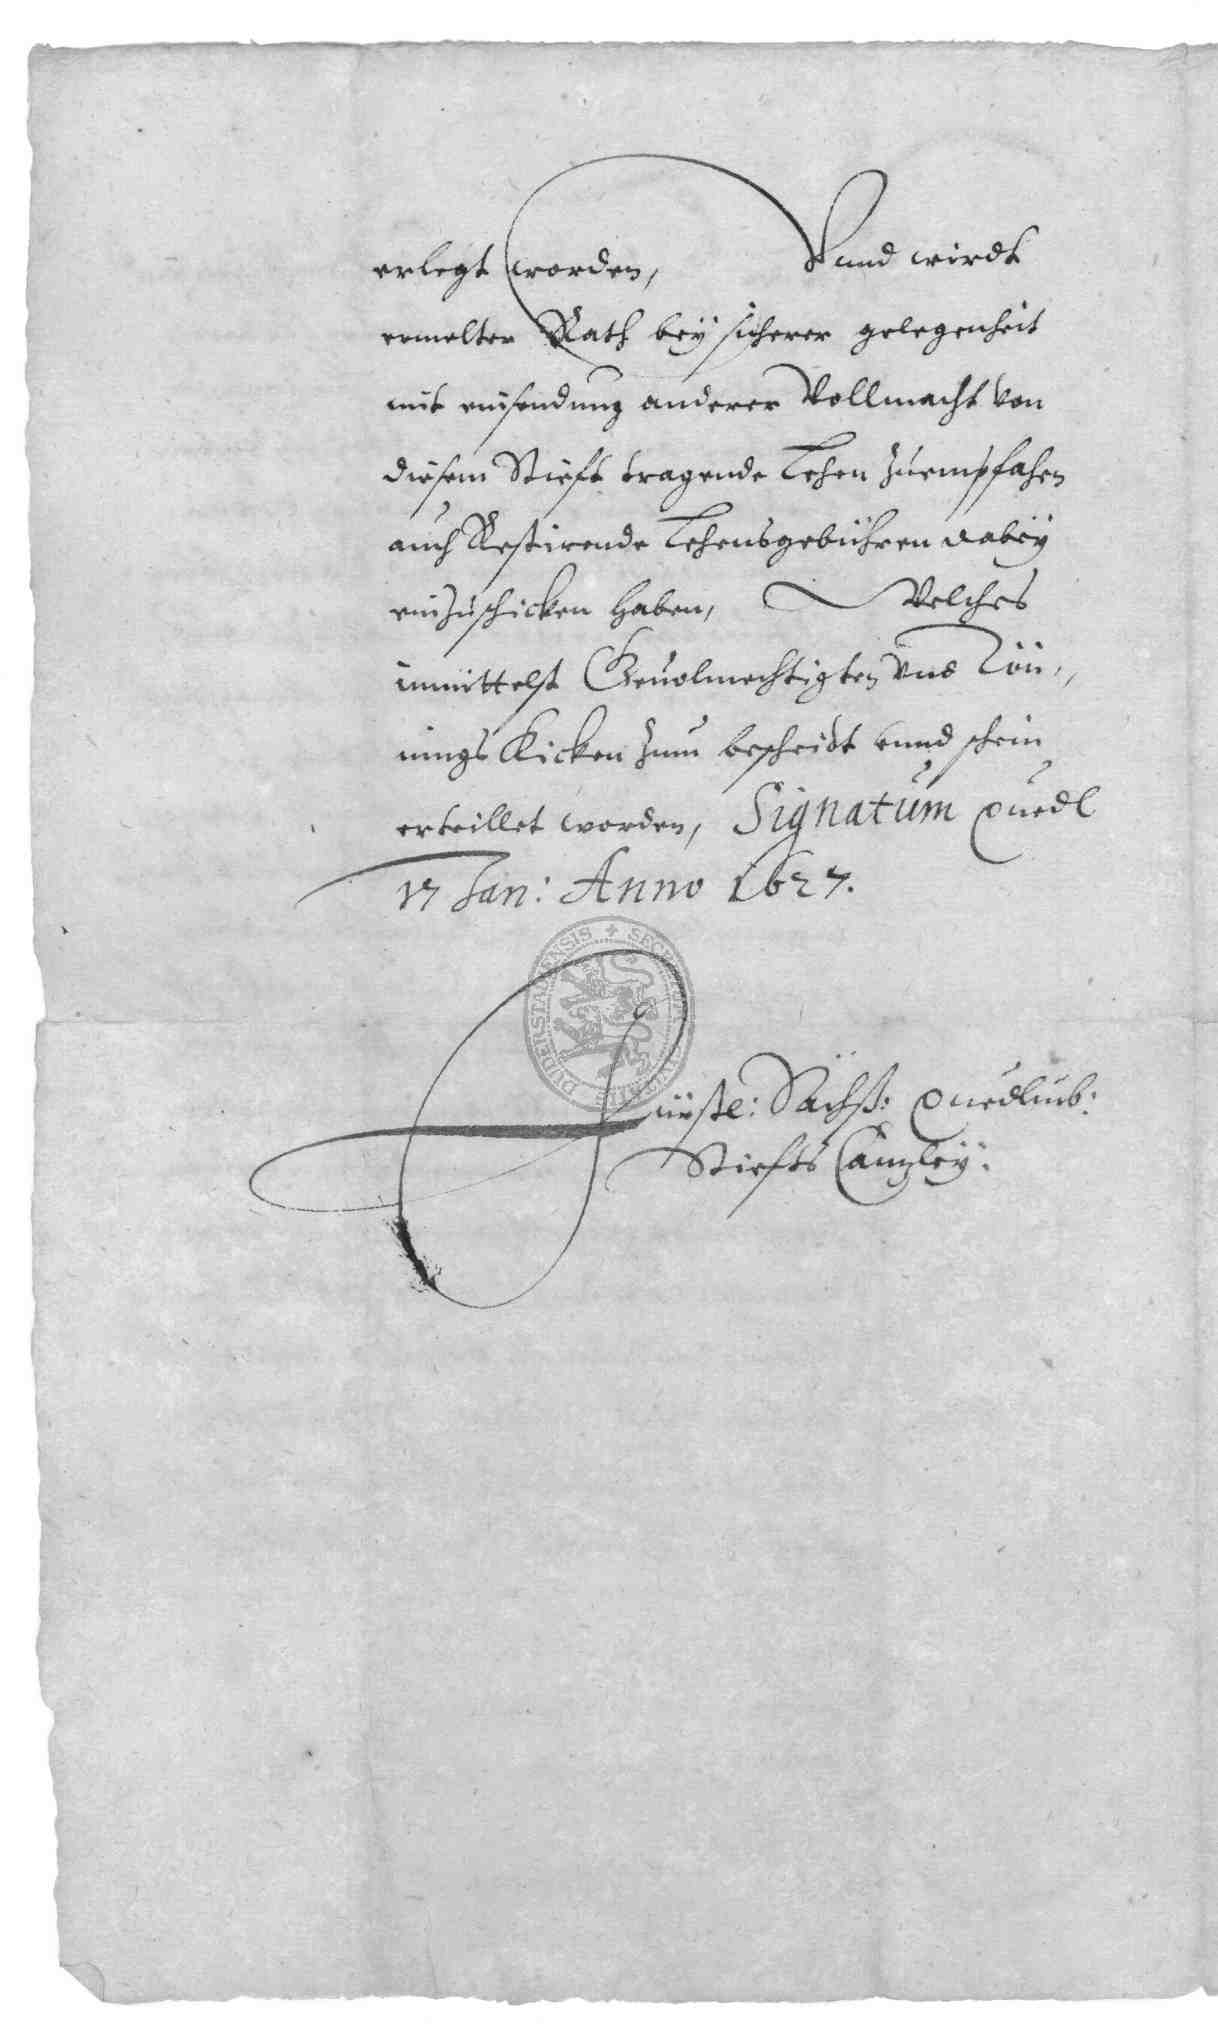 erlegt worden, Vnnd wirdt
ermelter Rath bey sicherer gelegenheit
mit einsendung anderer Vollmacht von
diesem Stieft tragende Lehen zuempfahen
auch Restirende Lehensgebühren dabey
einzuschicken haben, Welches
inmittelst Gevolmechtigten Vnd Tön,,
nings Kicken zum bescheidt vnnd schein
erteillet worden, Signatum Quedl
17 Jan: Anno 1627.
DUDERSTADENSIS + SECRETUM CIVITATIS
Fürstl: Sächß: Quedlinb:
Stiefts Cantzley.